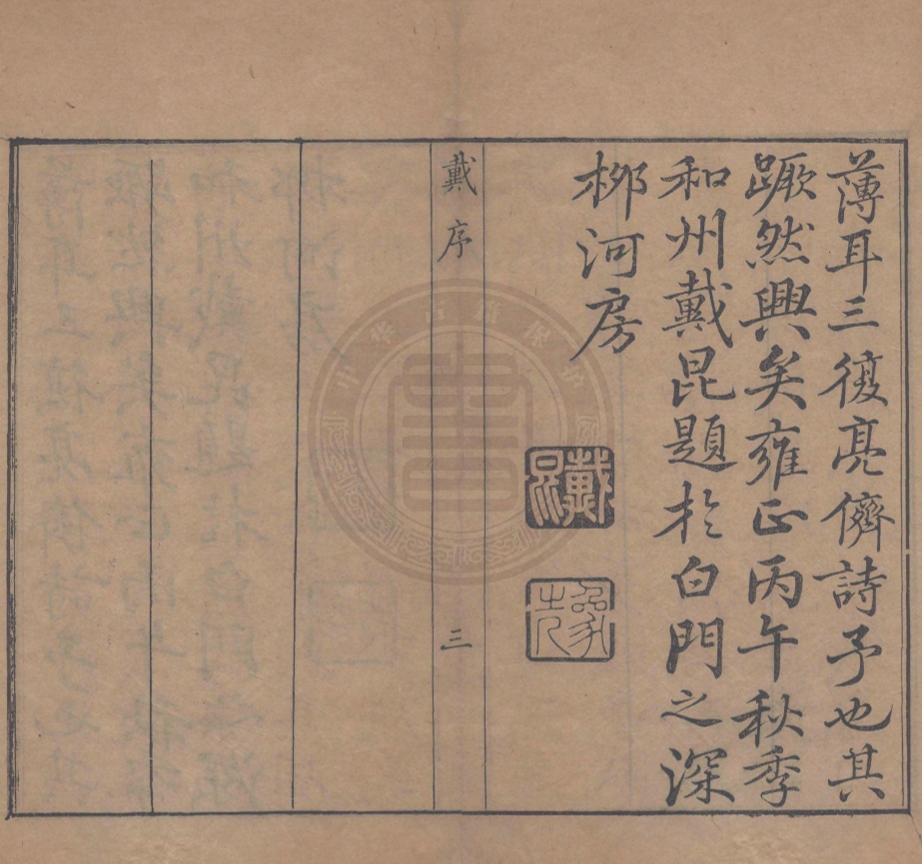 薄耳三復亮儕詩予也其
蹶然興矣雍正丙午秋季
和州戴昆題於白門之深
柳河房
戴昆
戴序
三